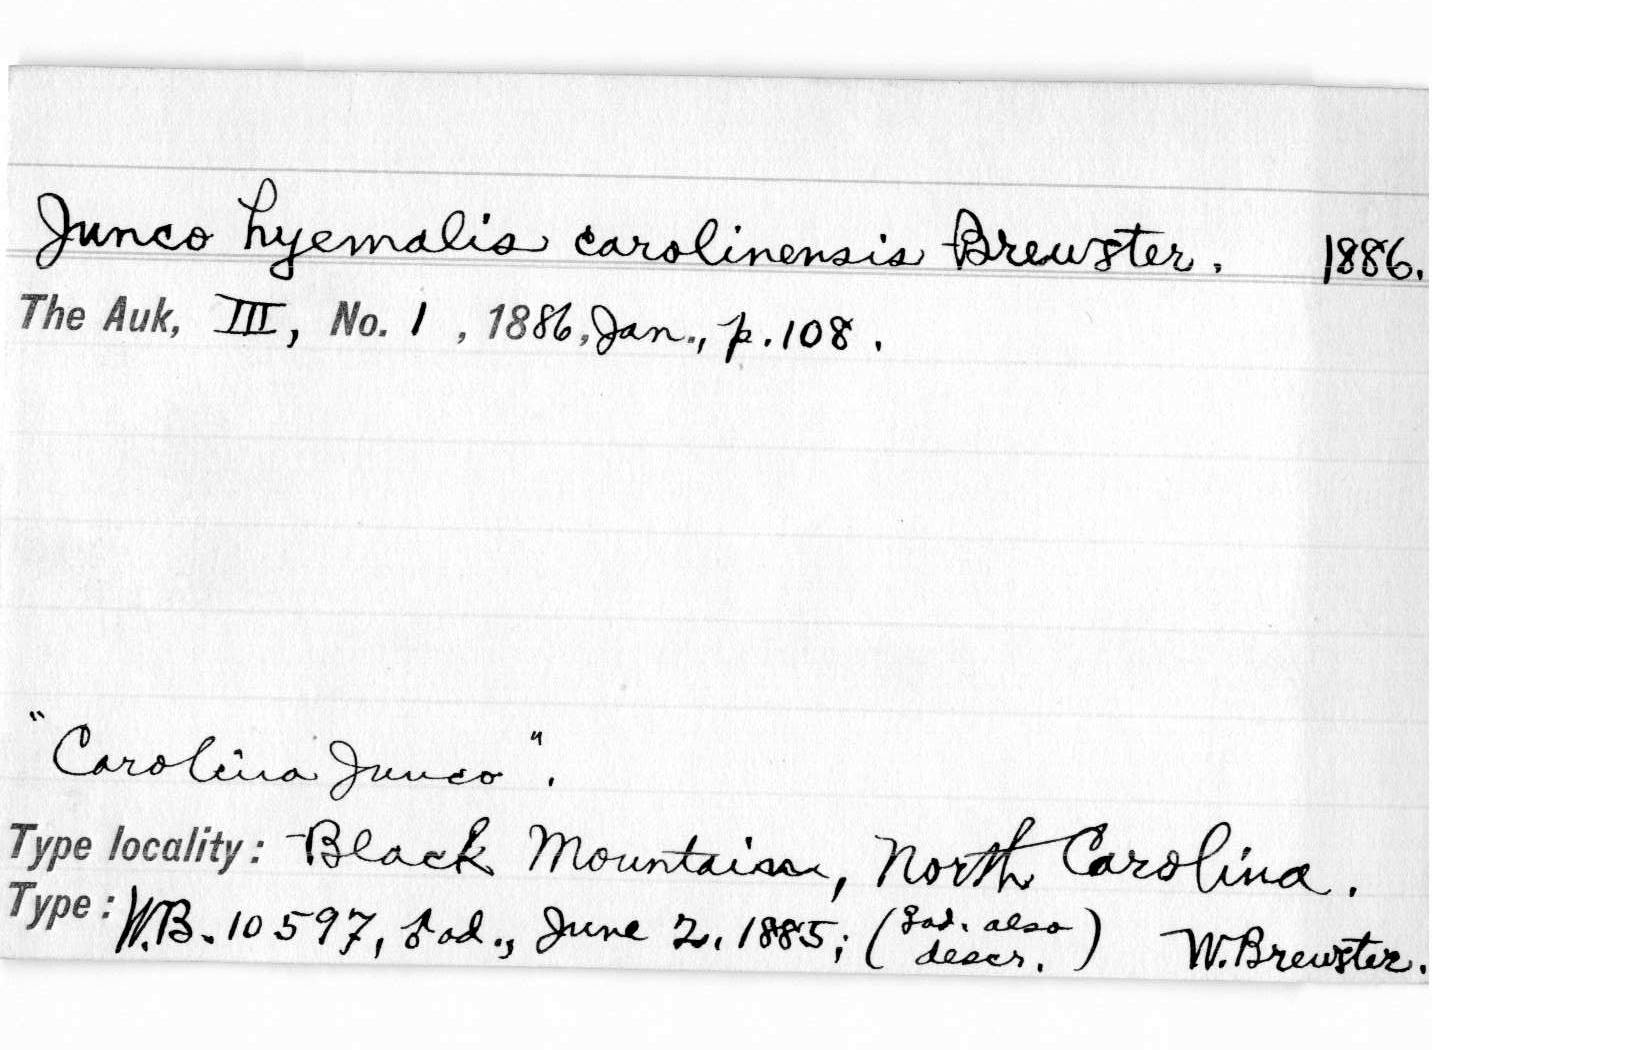 Junco hyemalis carolinensis Brewster. 1886.
The Auk, III, No. 1, 1886, Jan., p. 108.
"Carolina Junco".
Type locality: Black Mountain, North Carolina.
Type: W.B. 10597, ♂ ad., June 2, 1885; (♀ ad. also descr.) W. Brewster.